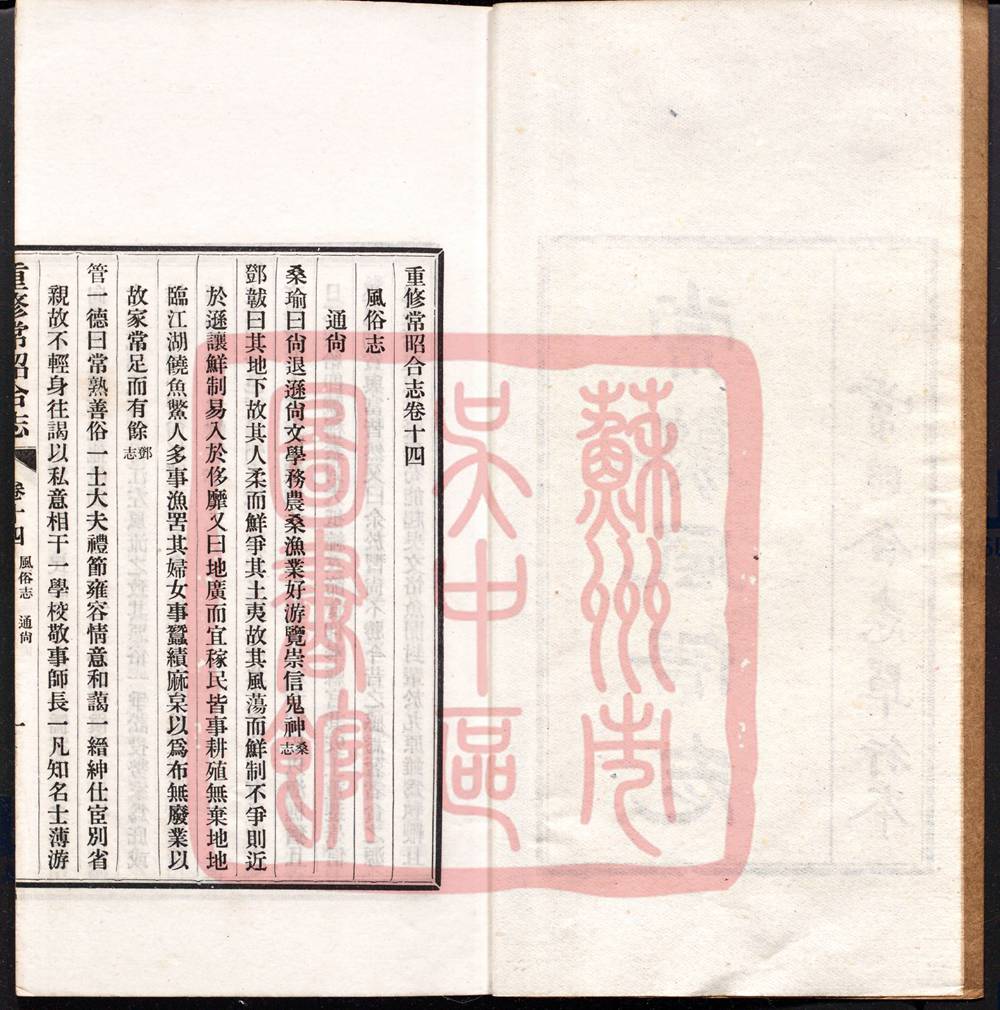 重修常昭合志卷十四
風俗志
通尙
桑瑜曰尙退遜尙文學務農桑漁業好游覽崇信鬼神桑志
鄧韍曰其地下故其人柔而鮮爭其土夷故其風蕩而鮮制不爭則近
於遜讓鮮制易入於侈靡又曰地廣而宜稼民皆事耕殖無棄地地
臨江湖饒魚鱉人多事漁罟其婦女事蠶績麻枲以爲布無廢業以
故家常足而有餘鄧志
管一德曰常熟善俗一士大夫禮節雍容情意和藹一縉紳仕宦別省
親故不輕身往謁以私意相干一學校敬事師長一凡知名士薄游
重修常昭合志 卷十四 風俗志 通尙 一
蘇州市
吳中區
圖書館